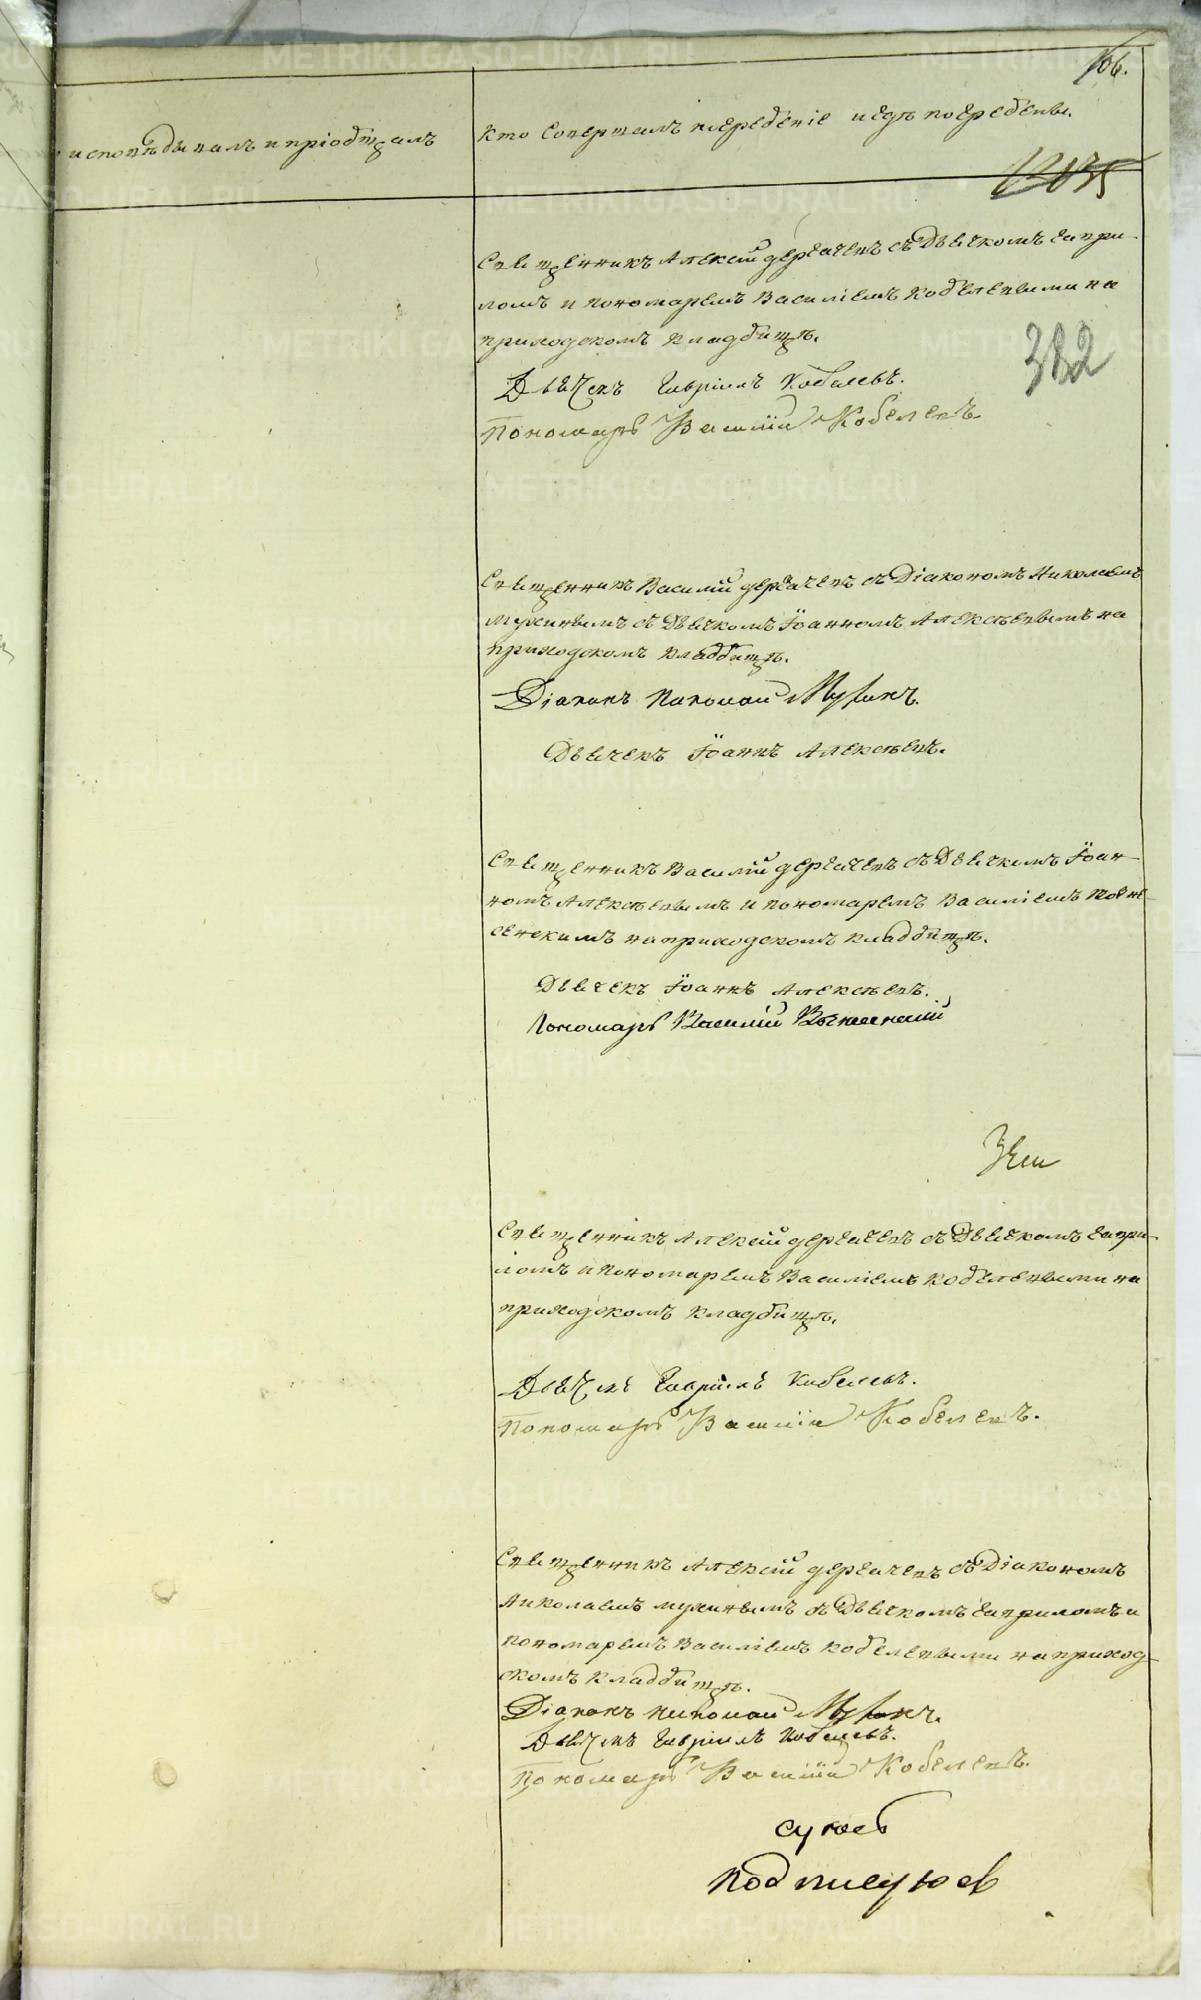 106.
исповѣдывалъ и пріобщалъ
Кто совершалъ погребеніе и гдѣ погребены.
382
Священникъ Алексій Дергачевъ съ Дьячкомъ Гаври-
ломъ и пономаремъ Василіемъ Кобелевыми на
приходскомъ кладбищѣ.
Дьячекъ Гавріилъ Кобелевъ.
Пономарь Василій Кобелевъ
Священникъ Василій Дергачевъ съ Діакономъ Николаемъ
Мухинымъ съ Дьячкомъ Іоанномъ Алексѣевымъ на
приходскомъ кладбищѣ.
Діаконъ Николай Мухинъ.
Дьячекъ Іоаннъ Алексѣевъ.
Священникъ Василій Дергачевъ съ Дьячкомъ Іоан-
номъ Алексѣевымъ и пономаремъ Василіемъ
сенскимъ на приходскомъ кладбищѣ.
Дьячекъ Іоаннъ Алексѣевъ.
Пономарь Василій Вознесенскій
Священникъ Алексій Дергачевъ съ Дьячкомъ Гаври-
ломъ и пономаремъ Василіемъ Кобелевыми на
приходскомъ кладбищѣ.
Дьячекъ Гавріилъ Кобелевъ.
Пономарь Василій Кобелевъ.
Священникъ Алексій Дергачевъ съ Діакономъ
Николаемъ Мухинымъ съ Дьячкомъ Гавриломъ и
пономаремъ Василіемъ Кобелевыми на приход-
скомъ кладбищѣ.
Діаконъ Николай Мухинъ.
Дьячекъ Гавріилъ Кобелевъ.
Пономарь Василій Кобелевъ.
METRIKI.GASO-URAL.RU